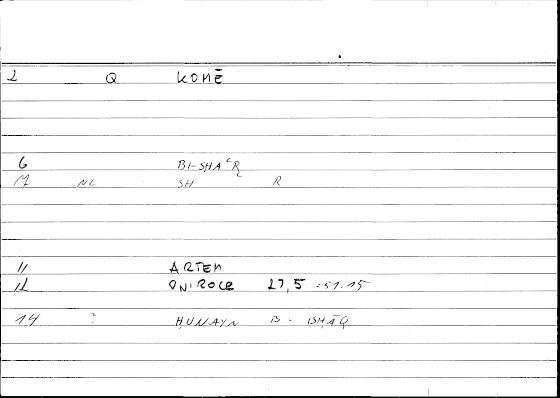 2 Q KOMĒ
6 BI-SHAʿR
M NL SH R
11 ARTEM
12 ONIROCR 27,5 = 51.15
14 ? ḤUNAYN B. ISḤĀQ